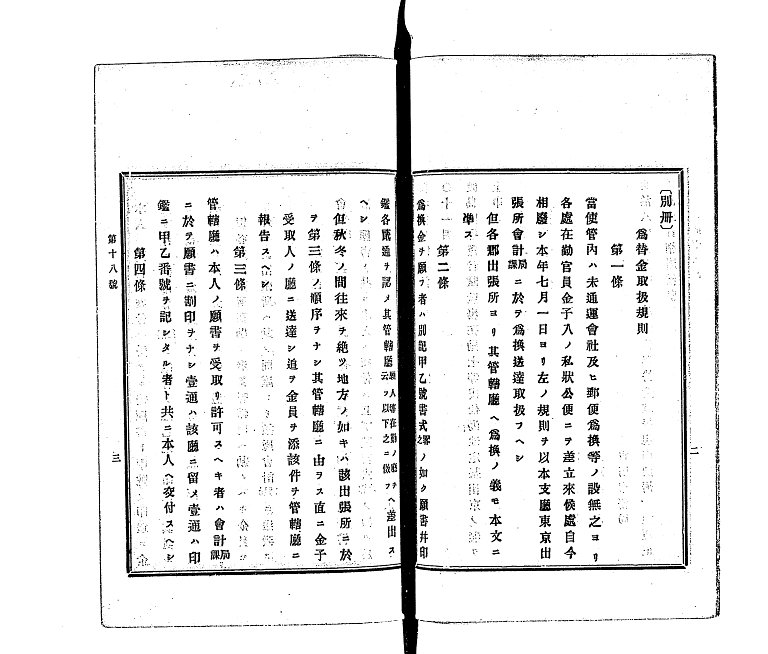 〔別冊〕
爲替金取扱規則
第一條
當使管內ハ未通運會社及ヒ郵便爲換等ノ設無之ヨリ
各處在勤官員金子入ノ私狀公便ニテ差立來候處自今
相廢シ本年七月一日ヨリ左ノ規則ヲ以本支廳東京出
張所會計局課ニ於テ爲換送達取扱フヘシ
但各郡出張所ヨリ其管轄廳ヘ爲換ノ義モ本文ニ
準ス
第二條
爲換金ヲ願フ者ハ別記甲乙號書式之ノ如ク願書幷印
鑑各貳通ヲ認メ其管轄廳ヘ差出ス
ヘシ
但秋冬ノ間往來ヲ絕ツ地方ノ如キハ該出張所ニ於
ヲ第三條ノ順序ヲナシ其管轄廳ニ由ラス直ニ金子
受取人ノ廳ニ送達シ追ヲ金員ヲ添該件ヲ管轄廳ニ
報告スヘシ
第三條
管轄廳ハ本人ノ願書ヲ受取リ許可スヘキ者ハ會計局課
ニ於ヲ願書ニ割印ヲナシ壹通ハ該廳ニ留メ壹通ハ印
鑑ニ甲乙番號ヲ記シタル者ト共ニ本人ヘ交付スヘシ
第四條
第十八號
二
三